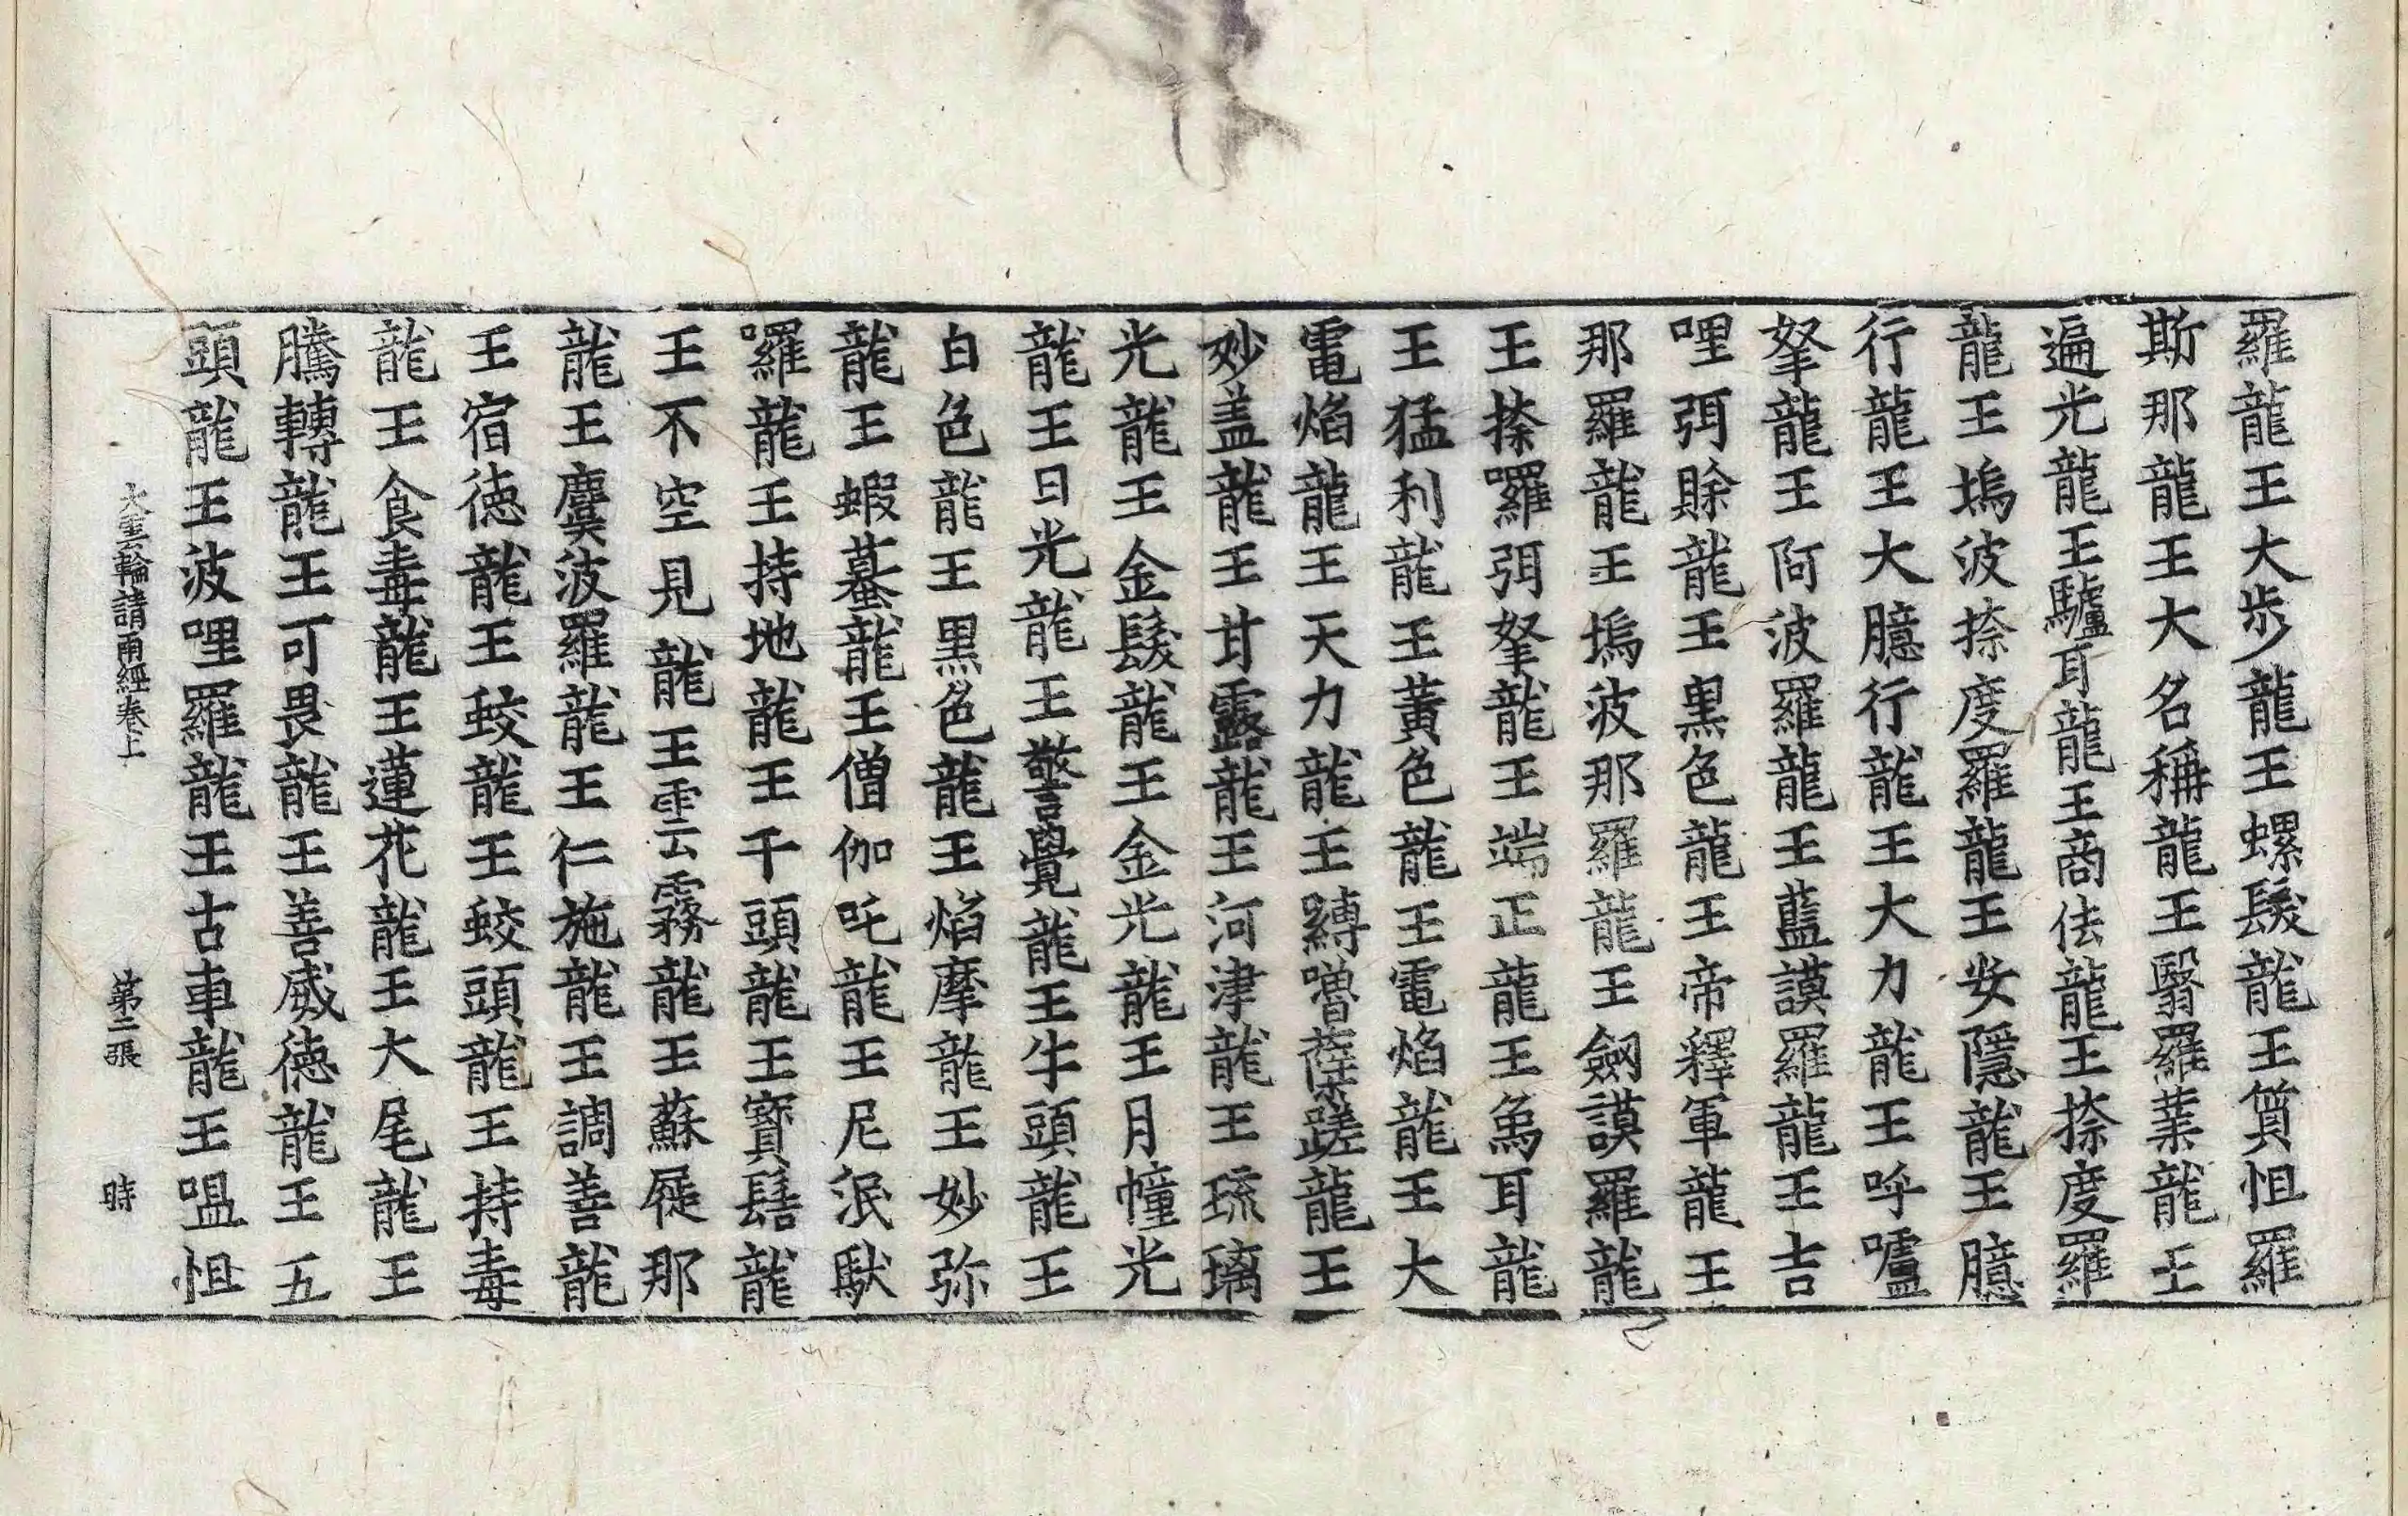 羅龍王大步龍王螺髮龍王質怛羅
斯那龍王大名稱龍王翳羅葉龍王
遍光龍王驢耳龍王商佉龍王捺度羅
龍王塢波捺度羅龍王安隱龍王臆
行龍王大臆行龍王大力龍王呼嚧
拏龍王阿波羅龍王藍謨羅龍王吉
哩弭賒龍王黑色龍王帝釋軍龍王
那羅龍王塢波那羅龍王劒謨羅龍
王捺囉弭拏龍王端正龍王象耳龍
王猛利龍王黃色龍王電焰龍王大
電焰龍王天力龍王縛嚕蘖蹉龍王
妙盖龍王甘露龍王河津龍王琉璃
光龍王金髮龍王金光龍王月幢光
龍王日光龍王警覺龍王牛頭龍王
白色龍王黑色龍王焰摩龍王妙弥
龍王蝦蟇龍王僧伽吒龍王尼泯馱
囉龍王持地龍王千頭龍王寶髻龍
王不空見龍王雲霧龍王蘇屣那
龍王麌波羅龍王仁施龍王調善龍
王宿德龍王蛟龍王蛟頭龍王持毒
龍王食毒龍王蓮花龍王大尾龍王
騰轉龍王可畏龍王善威德龍王五
頭龍王波哩羅龍王古車龍王嗢怛
大雲輪請雨經卷上 第二張 時